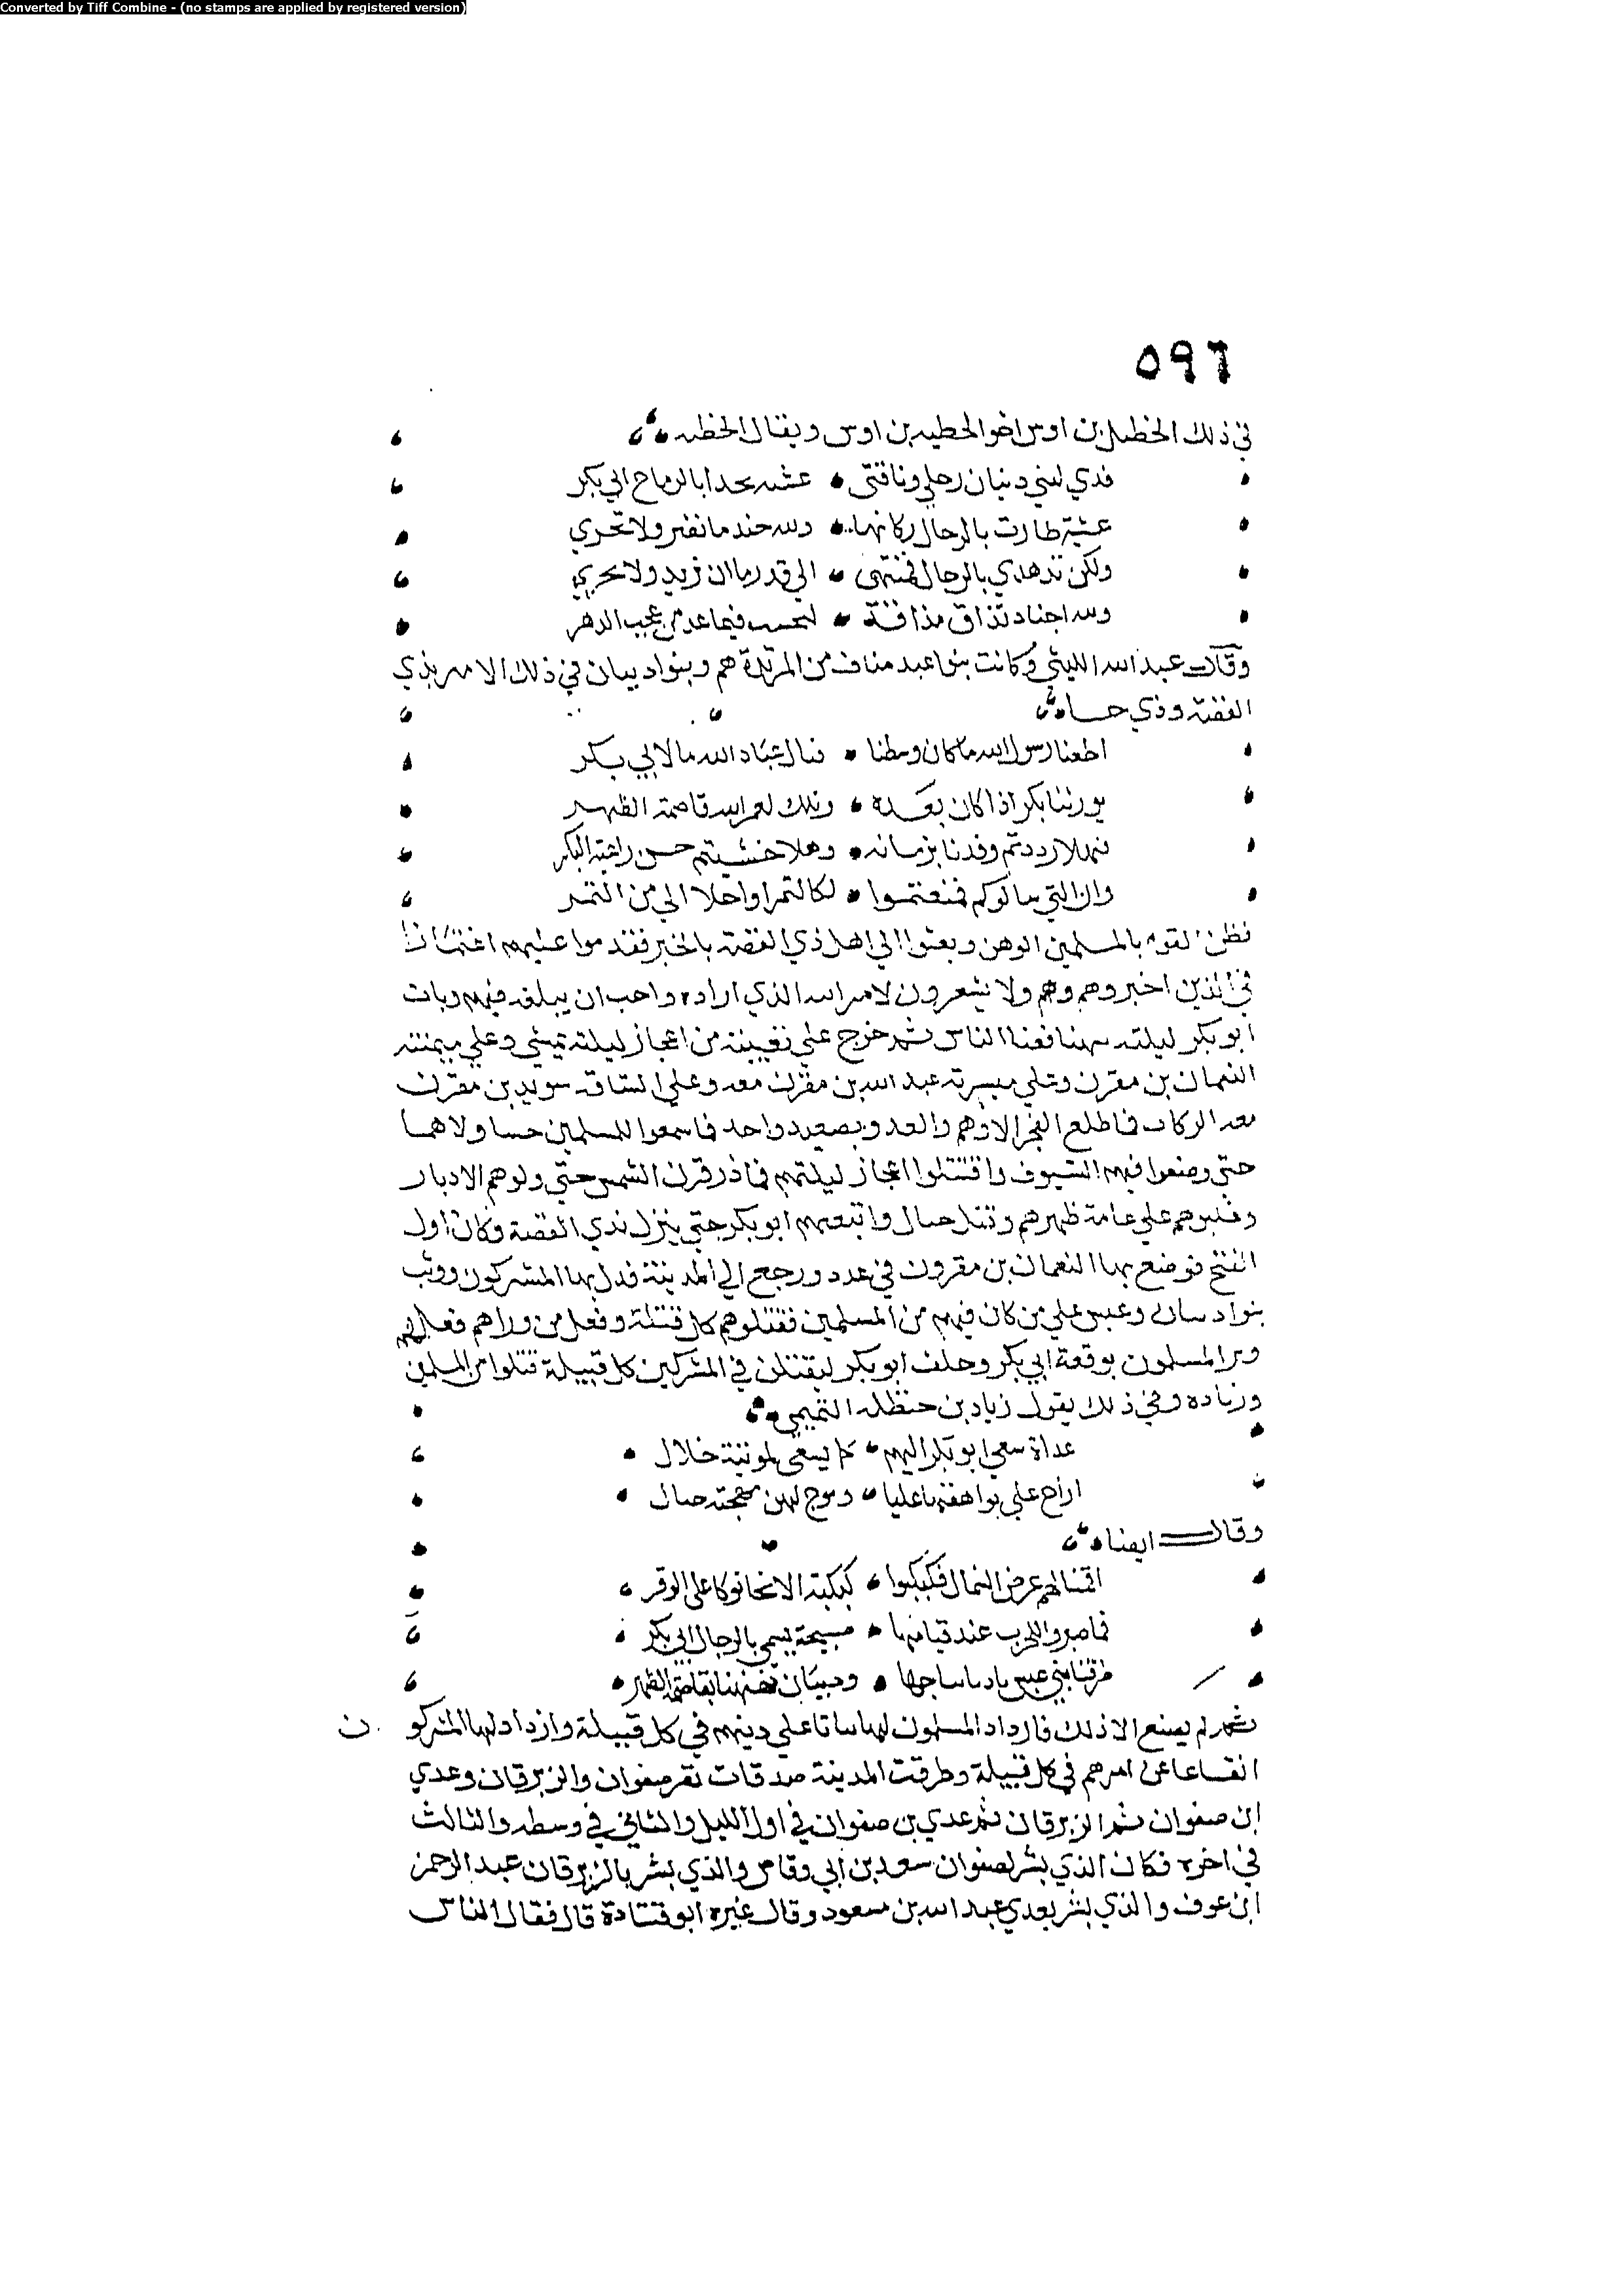 Converted by Tiff Combine - (no stamps are applied by registered version)
٥٩٦
في ذلك الخطيل بن اوس اخو الحطيه بن اوس ويقال الخطيه
فدي لبني دنيان رحلي وناقتي عشيه يحدا بالرماح ابي بكر
عشية طارت بالرجال ركانها ولله حند ما نفر ولا تحري
ولكن تدهدي بالرجال فتنتهى الي قدر ما ان تزيد ولا تحري
ولله اجناد تذاق مذاقة لتحسب فيما عد من عجب الدهر
وقال عبد الله الليثي وكانت بنوا عبد مناف من المرتدة هم وبنوا دبيان في ذلك الامر بذي
القصة وذي حسا
اطعنا رسول الله ما كان وسطنا فيال عباد الله ما لابي بكر
يورثنا بكر اذا كان بعده وتلك لعمر الله قاصمة الظهر
فهلا رددتم وفدنا بزمانه وهلا خشيتم حس راغية البكر
وان التي سالوكم فمنعتموا لكالتمر او احلا الي من التمر
فظن القوم بالمسلمين الوهن وبعثوا الي اهل ذي القصة بالخبر فقدموا عليهم اعتمادا
في الذين اخبروهم وهم ولا يشعرون لامر الله الذي اراده واحب ان يبلغه فيهم وبات
ابو بكر ليلته يتهيا فعبا الناس ثم خرج علي تعبيته من اعجاز ليلته يمشي وعلي ميمنته
النعمان بن مقرن وعلي ميسرته عبد الله بن مقرن معه وعلي الساقه سويد بن مقرن
معه الركاب فما طلع الفجر الا وهم والعدو بصعيد واحد فما سمعوا للمسلمين حسا ولا همسا
حتى وضعوا فيهم السيوف واقتتلوا اعجاز ليلتهم فما ذر قرن الشمس حتى ولوهم الادبار
وغلبوهم علي عامة ظهرهم وقتل حبال واتبعهم ابو بكر حتي ينزل بذي القصة وكان اول
الفتح فوضع بها النعمان بن مقرون في عدد ورجع الي المدينة فذل بها المشركون ووثب
بنوا دبيان وعبس علي من كان فيهم من المسلمين فقتلوهم كل قتلة وفعل من وراهم فعلهم
وعز المسلمون بوقعة ابي بكر وحلف ابو بكر ليقتلن في المشركين كل قبيلة قتلوا من المسلمين
وزياده وفي ذلك يقول زياد بن حنظله التميمي
غداة سعي ابو بكر اليهم كما يسعى لموتته خلال
اراح علي نواهقها عليا ومج لهن مهجته حبال
وقال ايضا
اقمنا لهم عرض الشمال فكبكبوا كبكبة الا نحا نوكا على الوفر
فما صبروا للحرب عند قيامها صبيحة يسمى بالرجال ابي بكر
طرقنا بني عبس بادنا نباجها ودبيان نهنهنا بقاصمة الظهر
ثم لم يصنع الا ذلك فازداد المسلمون لها ثباتا علي دينهم في كل قبيلة وازداد لها المشركون
انعكاسا عن امرهم في كل قبيلة وطرقت المدينة صدقات نفر صفوان والزبرقان وعدي
ابن صفوان ثم الزبرقان ثم عدي بن صفوان في اول الليل والثاني في وسطه والثالث
في اخره فكان الذي بشر لصفوان سعد بن ابي وقاص والذي بشر بالزبرقان عبد الرحمن
ابن عوف والذي بشر بعدي عبد الله بن مسعود وقال غيره ابو قتادة قال فقال الناس